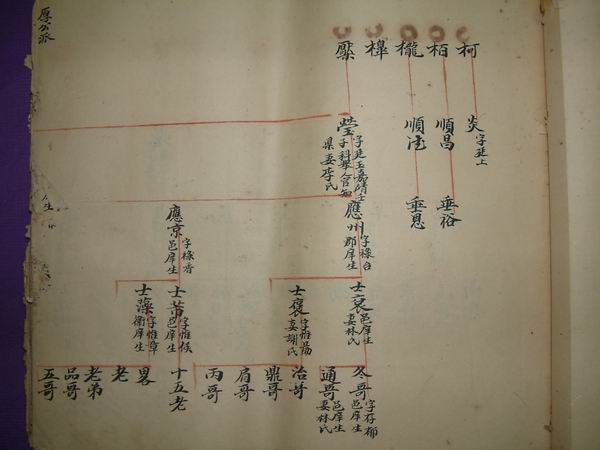 柯
栢
櫳
樟
檗
炎 字廷上
順昌
順法
瑩 字廷玉嘉靖壬
子科舉人官知
県妻李氏
垂裕
垂恩
應州 字祿台
郡庠生
應京 字祿吾
邑庠生
士衮 邑庠生
妻林氏
士褒 字惟陽
妻謝氏
士芾 字惟候
邑庠生
士藻 字惟章
衛庠生
冬哥 字存郁
邑庠生
通哥 邑庠生
妻林氏
冶哥
鼎哥
肩哥
丙哥
十五老
畧
老
老弟
品哥
五哥
厚公派